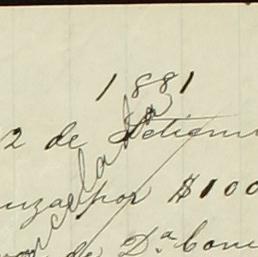 1881
2 de Setiem
por $100
de Dª
Cancelada